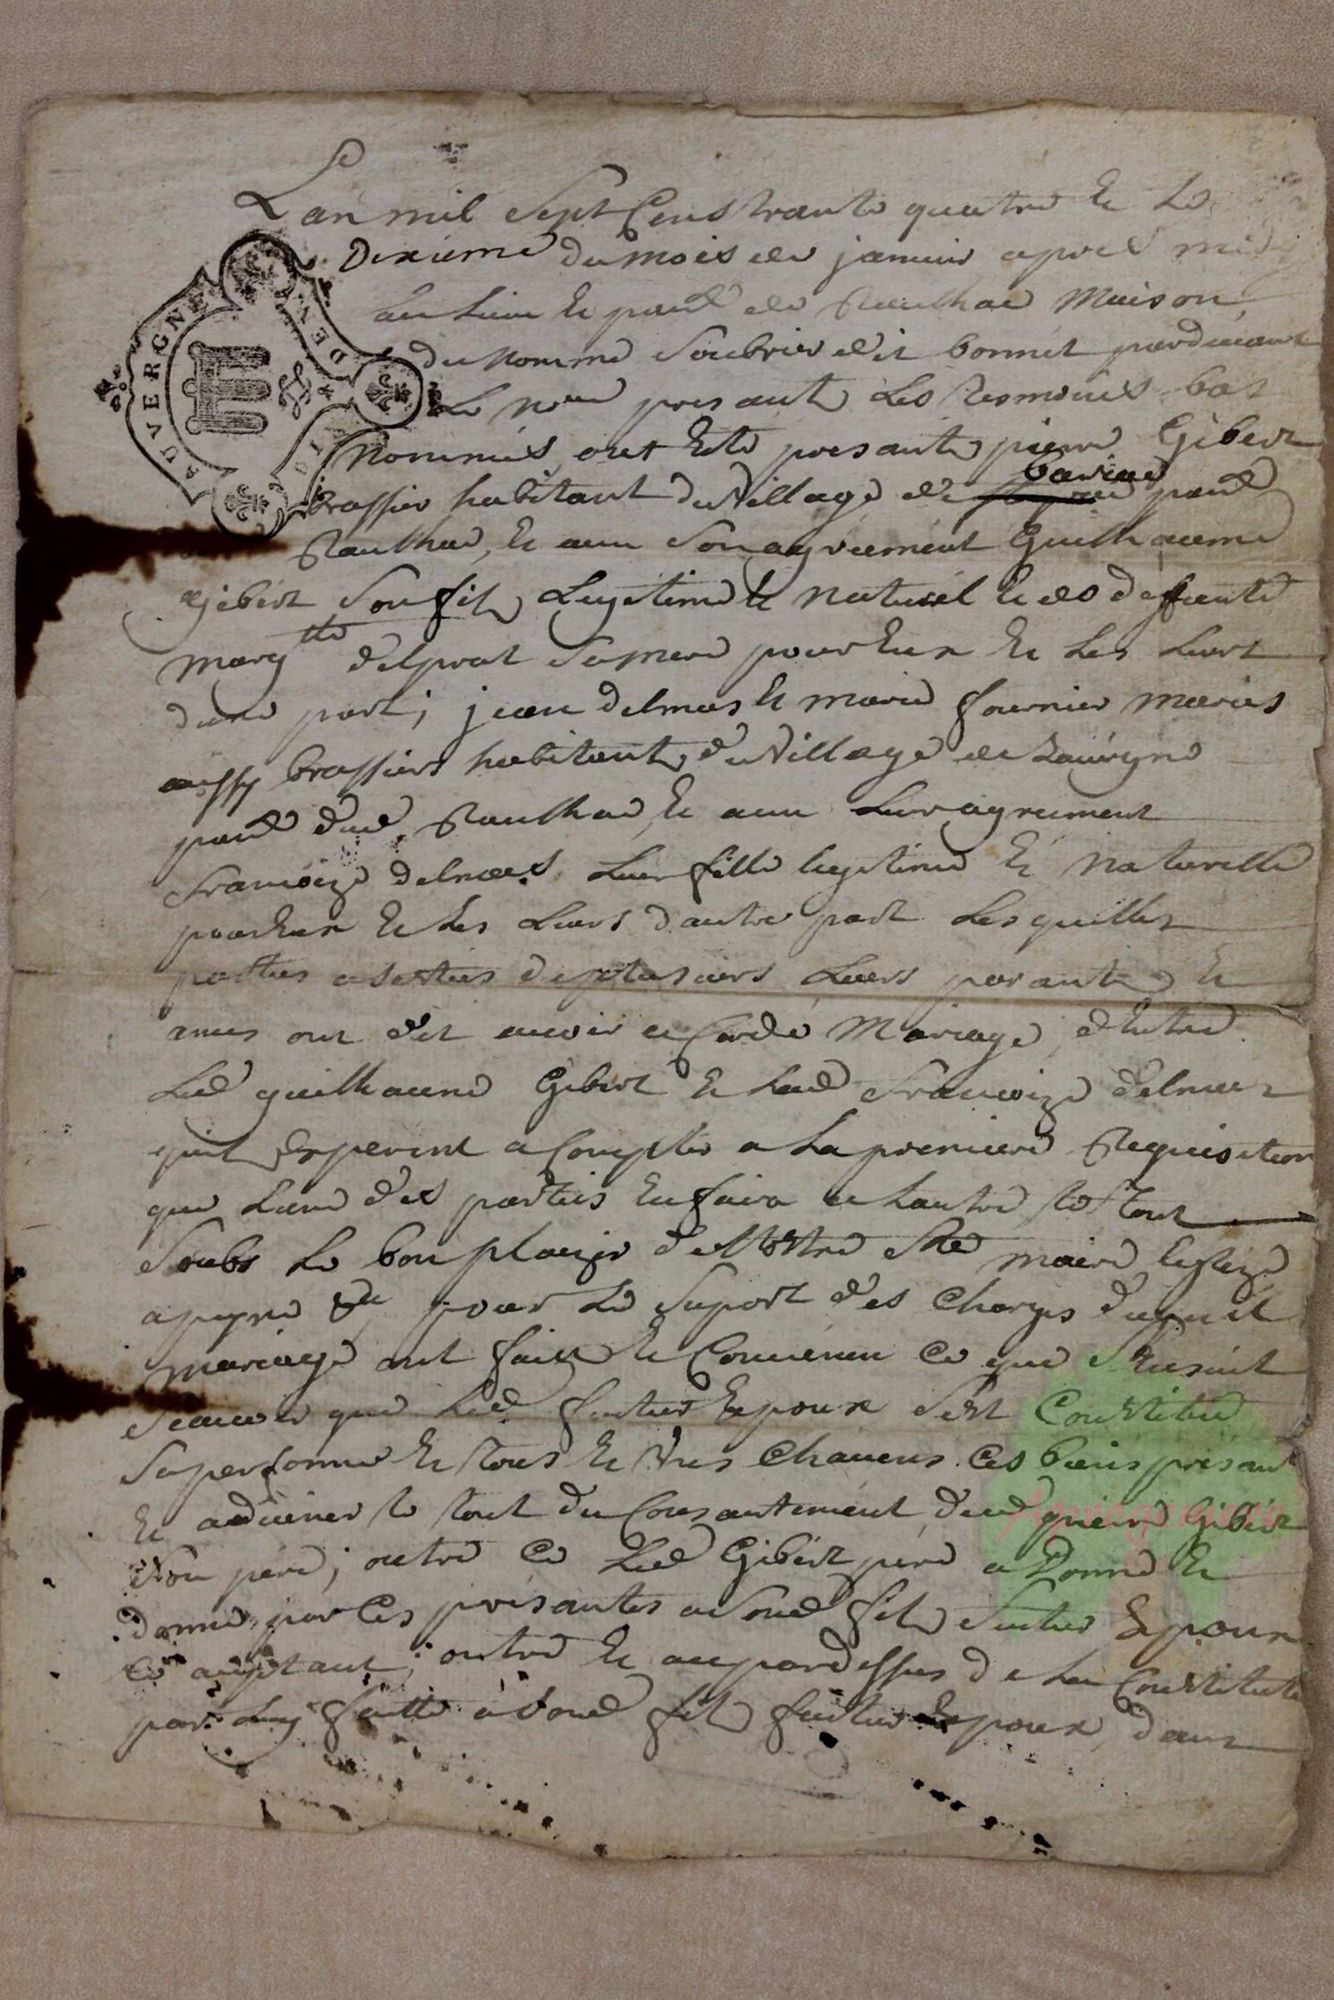 Lan mil Sept Cens trante quatre & Le
Dixieme du mois de janvier apres midi
au Lieu & paroe de Raulhac Maison
du Nommé Soubrier dit bonnet pardevant
Le nore presant Les tesmoins bas
Nommés ont Esté presants pierre Gibert
AUVERGNE
brassier habitant du Village de bariac paroe
Raulhac, & avec Son agreement Guilhaume
Gibert Son fils Legitime & Naturel & de deffunte
margtte delprat Sa mere pour Eux & Les Leurs
dune part; jean delmas & marie fournier maries
aussy brassiers habitants du Village de
paroe dud. Raulhac & avec Leur agrement
francoize delmas Leur fille legitime & Naturelle
pour Eux & Les Leurs dautre part Lesquelles
parties assistees de plusieurs Leurs parants &
amis ont dit avoir acordé Mariage dEntre
Led guilhaume Gibert & Lad francoize delmas
quil Esperent acomplir a La premiere Requisition
que Lune des parties En faira a Lautre, Le tout
Soubs Le bon plaizir de Nostre Ste mere Esglize
a peyne &a pour Le Suport des Charges duquel
mariage ont fait & Convenu Ce que Sensuit
Scavoir que Led futur Epoux Sest Constitué
Sa personne & tous & uns Chacuns Ces biens presant
& advenir le tout du Consantement dud pierre Gibert
Son pere; outre Ce Led Gibert pere a Donné &
donne par Ces presantes a Soud fils futur Epoux
Ce aceptant; outre & au pardessus de La Constitution
par Luy faitte a Soud fils futur Epoux, dans